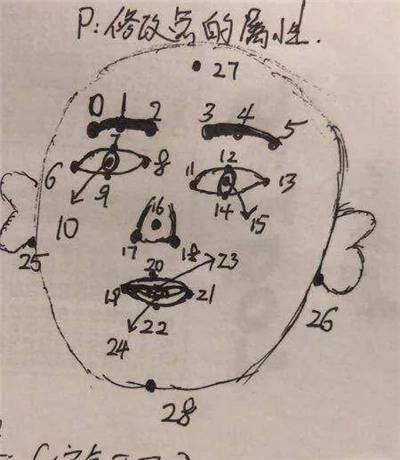 P: 修改点的属性.
27
0 1 2 3 4 5
6 7 8 11 12 13
9 14
10 15
16
17 18
25 20 23
19 21 26
22
24
28